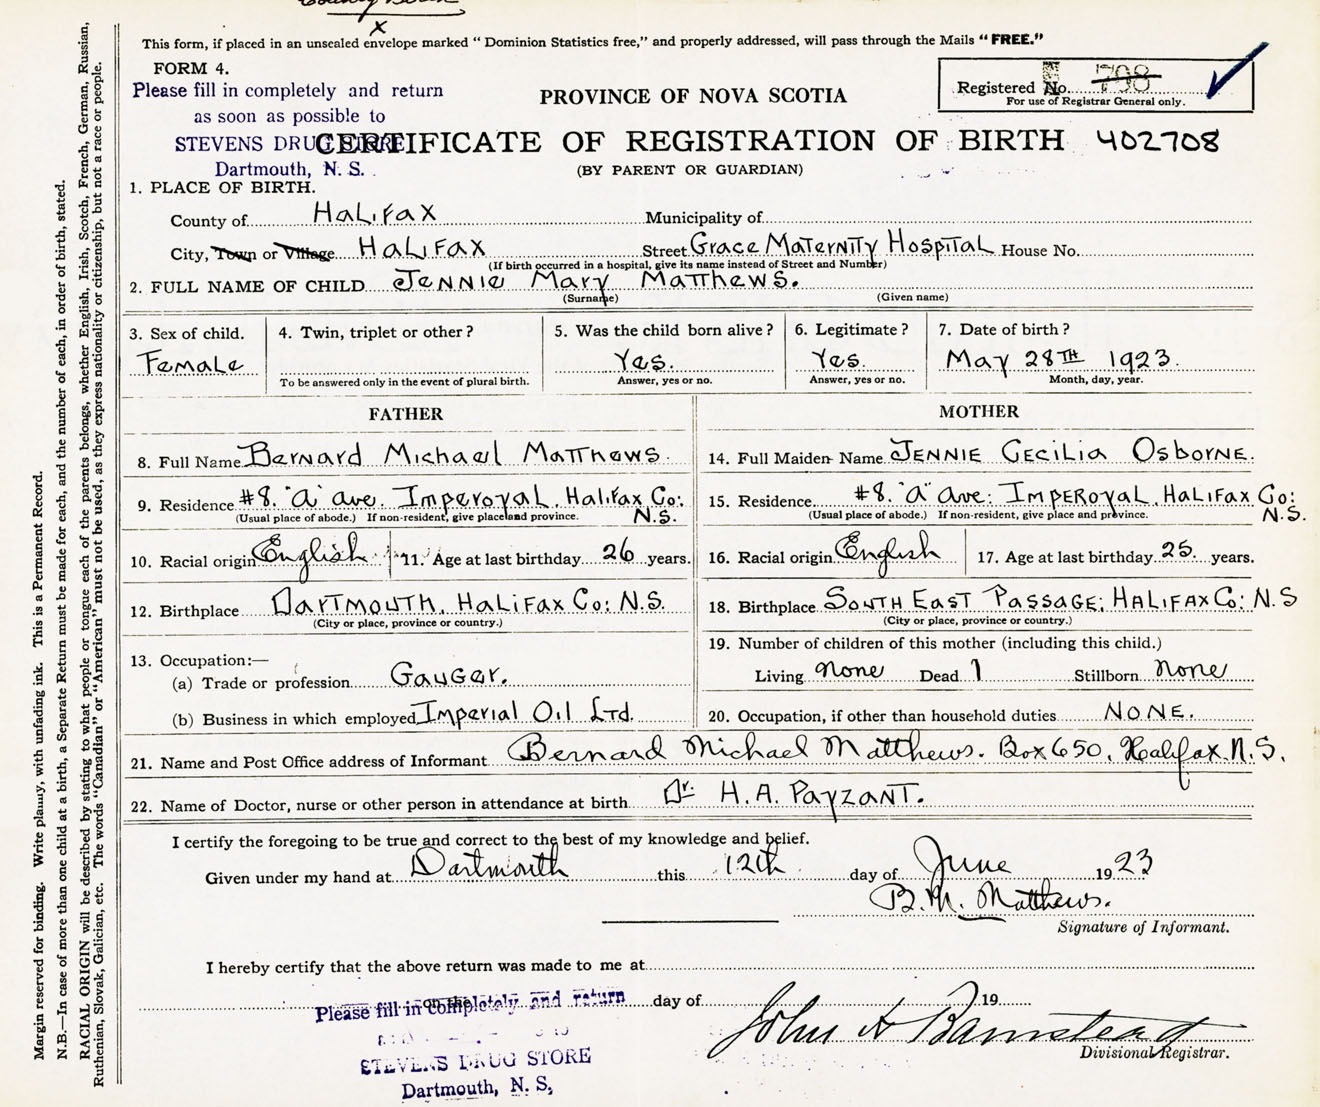 County Birth
x
This form, if placed in an unsealed envelope marked "Dominion Statistics free," and properly addressed, will pass through the Mails "FREE."
FORM 4.
Please fill in completely and return
as soon as possible to
STEVENS DRUG STORE
Dartmouth, N. S.
PROVINCE OF NOVA SCOTIA
Registered No. 798
For use of Registrar General only.
CERTIFICATE OF REGISTRATION OF BIRTH 402708
(BY PARENT OR GUARDIAN)
1. PLACE OF BIRTH.
County of Halifax Municipality of
City, Town or Village Halifax Street Grace Maternity Hospital House No.
(If birth occurred in a hospital, give its name instead of Street and Number)
2. FULL NAME OF CHILD Jennie Mary Matthews.
(Surname) (Given name)
3. Sex of child. 4. Twin, triplet or other? 5. Was the child born alive? 6. Legitimate? 7. Date of birth?
Female Yes. Yes. May 28TH 1923.
To be answered only in the event of plural birth. Answer, yes or no. Answer, yes or no. Month, day, year.
FATHER MOTHER
8. Full Name Bernard Michael Matthews. 14. Full Maiden Name Jennie Cecilia Osborne.
9. Residence #8. "A" Ave. Imperoyal. Halifax Co: N.S. 15. Residence #8. "A" Ave: Imperoyal. Halifax Co: N.S.
(Usual place of abode.) If non-resident, give place and province. (Usual place of abode.) If non-resident, give place and province.
10. Racial origin English 11. Age at last birthday 26 years. 16. Racial origin English 17. Age at last birthday 25. years.
12. Birthplace Dartmouth. Halifax Co: N.S. 18. Birthplace South East Passage: Halifax Co: N.S
(City or place, province or country.) (City or place, province or country.)
13. Occupation:— 19. Number of children of this mother (including this child.)
(a) Trade or profession Gauger. Living none Dead 1 Stillborn none
(b) Business in which employed Imperial Oil Ltd. 20. Occupation, if other than household duties NONE.
21. Name and Post Office address of Informant Bernard Michael Matthews. Box 650, Halifax. N.S.
22. Name of Doctor, nurse or other person in attendance at birth Dr. H.A. Payzant.
I certify the foregoing to be true and correct to the best of my knowledge and belief.
Given under my hand at Dartmouth this 12th day of June 1923
B.M. Matthews.
Signature of Informant.
I hereby certify that the above return was made to me at
on the day of 19
Please fill in completely and return
STEVENS DRUG STORE
Dartmouth, N. S.
John A Bamstead
Divisional Registrar.
Margin reserved for binding. Write plainly, with unfading ink. This is a Permanent Record.
N.B.—In case of more than one child at a birth, a Separate Return must be made for each, and the number of each, in order of birth, stated.
RACIAL ORIGIN will be described by stating to what people or tongue each of the parents belongs, whether English, Irish, Scotch, French, German, Russian,
Ruthenian, Slovak, Galician, etc. The words "Canadian" or "American" must not be used, as they express nationality or citizenship, but not a race or people.